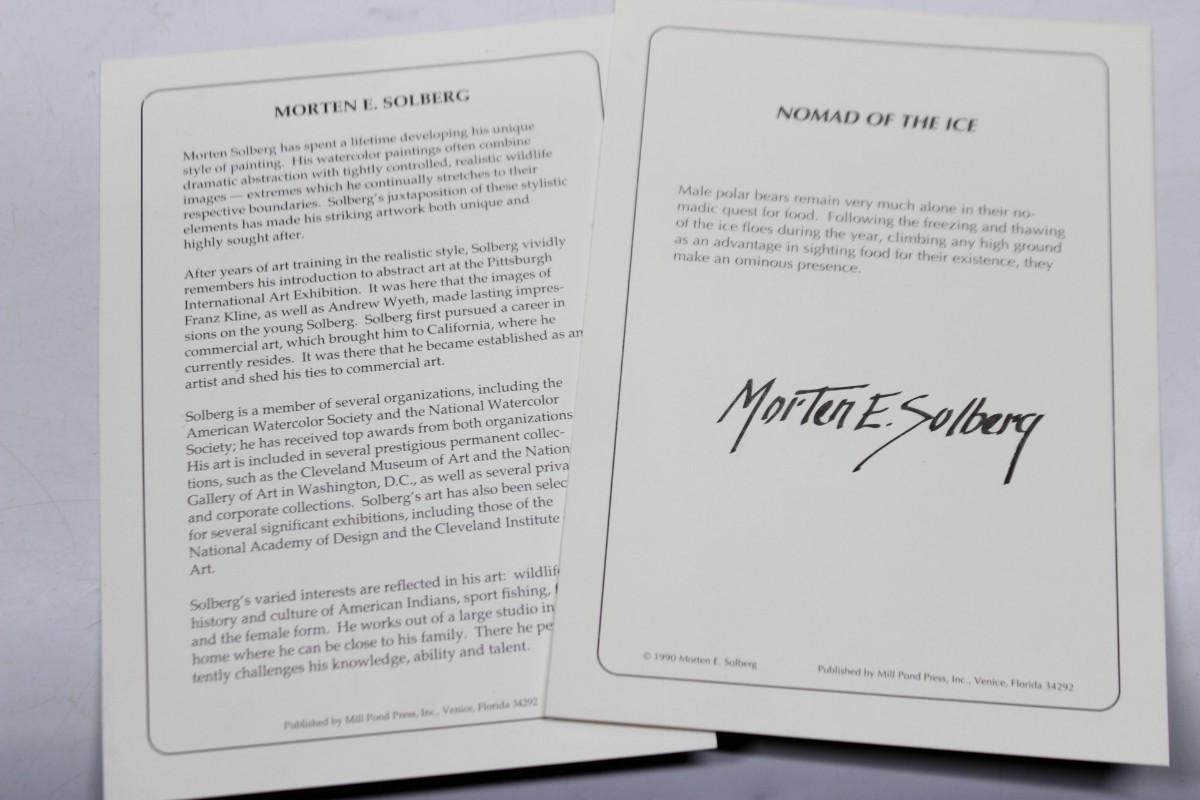 MORTEN E. SOLBERG
Morten Solberg has spent a lifetime developing his unique
style of painting. His watercolor paintings often combine
dramatic abstraction with tightly controlled, realistic wildlife
images — extremes which he continually stretches to their
respective boundaries. Solberg's juxtaposition of these stylistic
elements has made his striking artwork both unique and
highly sought after.
After years of art training in the realistic style, Solberg vividly
remembers his introduction to abstract art at the Pittsburgh
International Art Exhibition. It was here that the images of
Franz Kline, as well as Andrew Wyeth, made lasting impres-
sions on the young Solberg. Solberg first pursued a career in
commercial art, which brought him to California, where he
currently resides. It was there that he became established as an
artist and shed his ties to commercial art.
Solberg is a member of several organizations, including the
American Watercolor Society and the National Watercolor
Society; he has received top awards from both organizations
His art is included in several prestigious permanent collec-
tions, such as the Cleveland Museum of Art and the Nation
Gallery of Art in Washington, D.C., as well as several priva
and corporate collections. Solberg's art has also been selec
for several significant exhibitions, including those of the
National Academy of Design and the Cleveland Institute
Art.
Solberg's varied interests are reflected in his art: wildlife
history and culture of American Indians, sport fishing,
and the female form. He works out of a large studio in
home where he can be close to his family. There he pe
tently challenges his knowledge, ability and talent.
Published by Mill Pond Press, Inc., Venice, Florida 34292
NOMAD OF THE ICE
Male polar bears remain very much alone in their no-
madic quest for food. Following the freezing and thawing
of the ice floes during the year, climbing any high ground
as an advantage in sighting food for their existence, they
make an ominous presence.
Morten E. Solberg
© 1990 Morten E. Solberg
Published by Mill Pond Press, Inc., Venice, Florida 34292